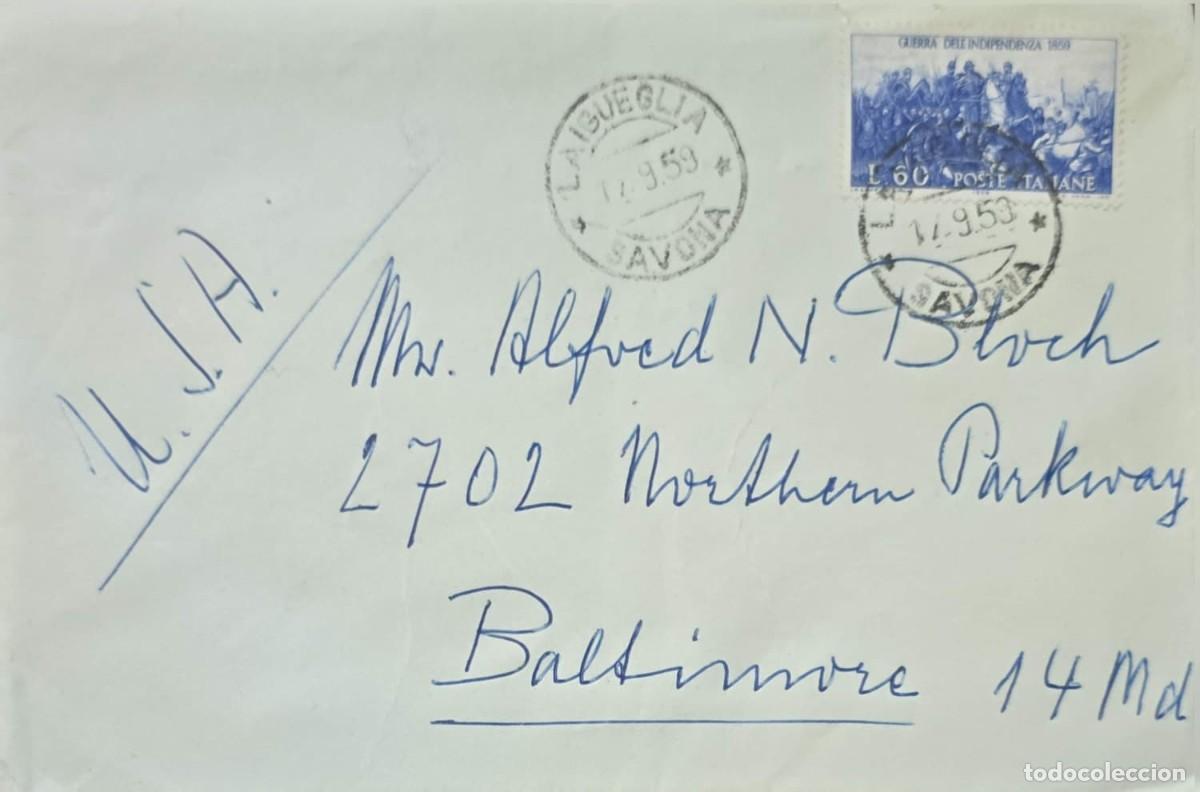 GUERRA DELL'INDIPENDENZA 1859
L.60 POSTE ITALIANE
LAIGUEGLIA
17.9.59
SAVONA
17.9.59
SAVONA
U.S.A.
Mr. Alfred N. Bloch
2702 Northern Parkway
Baltimore 14 Md
todocoleccion